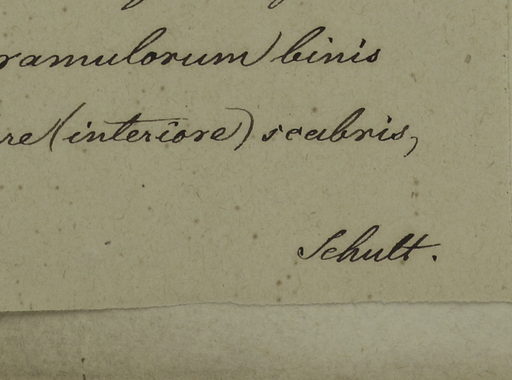 ramulorum binis
re (interiore) scabris,
Schult.